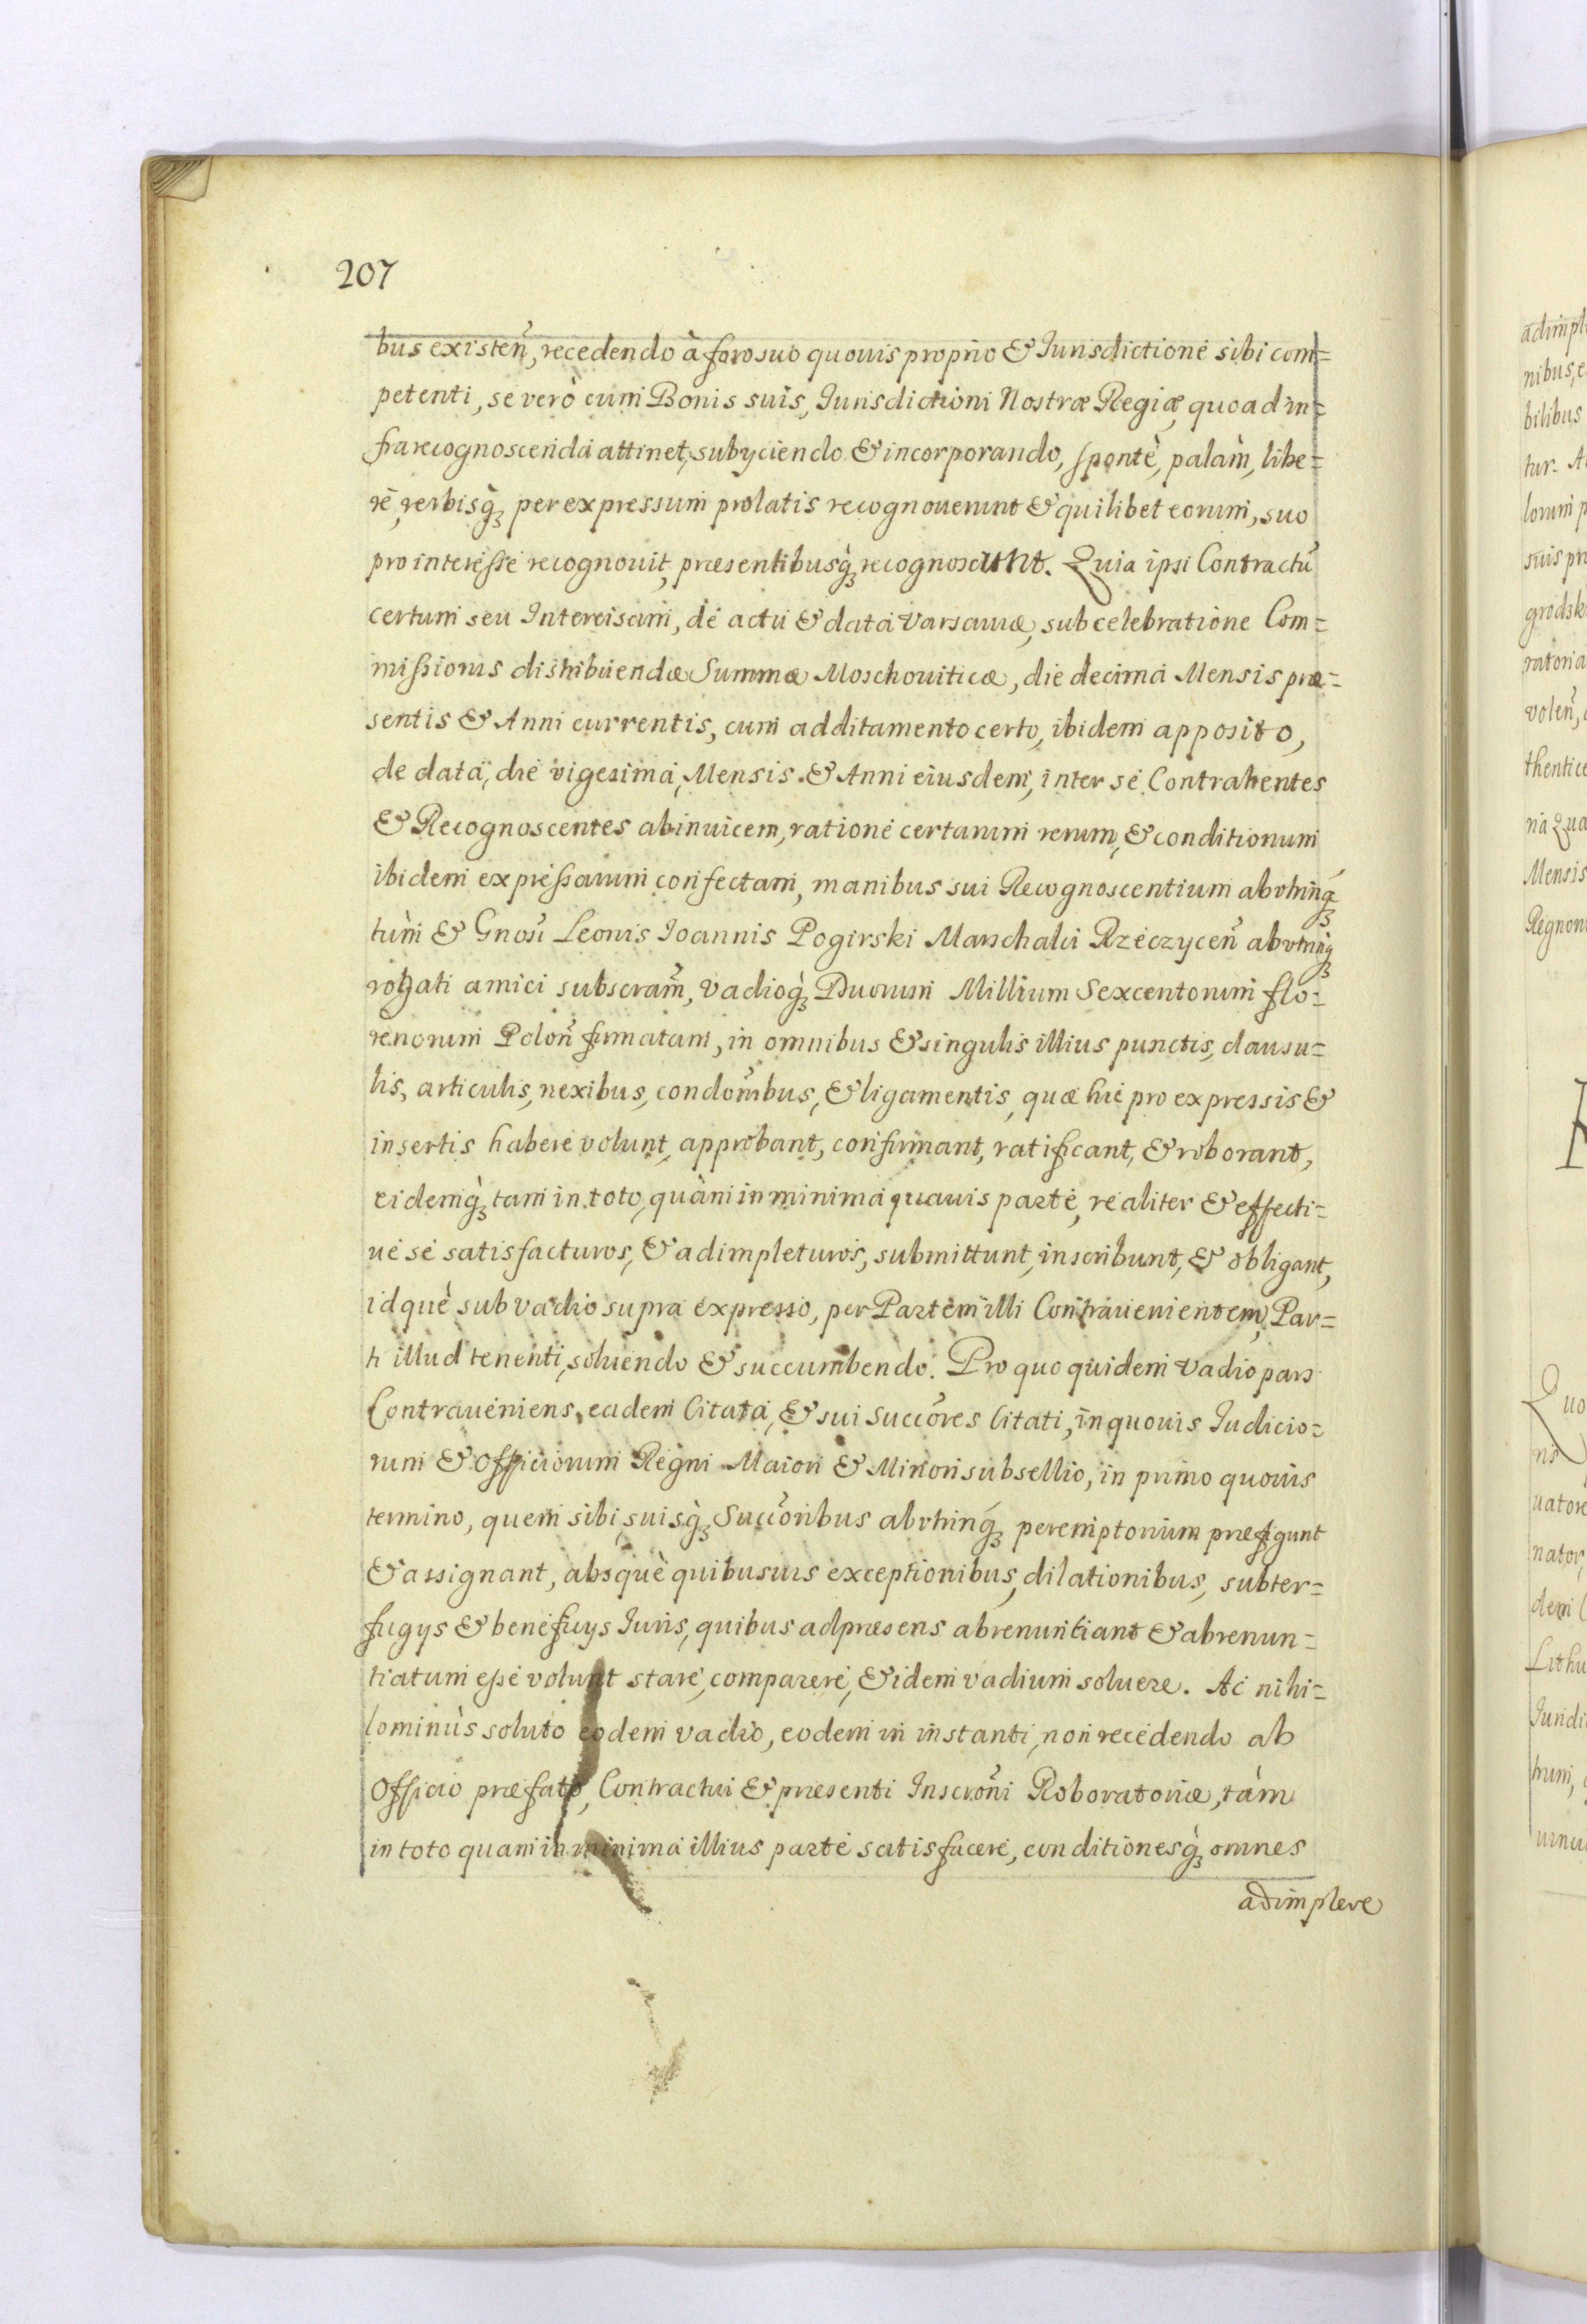 207
bus existeñ, recedendo à foro suo quouis proprio & Iurisdictione sibi com=
petenti, se verò cum Bonis suis, Iurisdictioni Nostræ Regiæ, quoad in=
fra recognoscenda attinet, subyciendo & incorporando, spontè, palàm, libe=
rè, verbisq́ꝫ per expressum prolatis recognouerunt & quilibet eorum, suo
pro interesse recognouit, præsentibusq́ꝫ recognoscunt. Quia ipsi Contractũ
certum seu Intercisam, de actu & data Varsauiæ, sub celebratione Com=
missionis distribuendæ Summæ Moschouiticæ, die decima Mensis præ=
sentis & Anni currentis, cum additamento certo, ibidem apposito,
de data, die vigesima, Mensis & Anni eiusdem, inter se Contrahentes
& Recognoscentes abinuicem, ratione certarum rerum, & conditionum
ibidem expressarum confectam, manibus sui Recognoscentium abvtrinq́ꝫ
tùm & Gnosi Leonis Ioannis Pogirski Marschalci Rzeczyceñ abvtrinq́ꝫ
rogati amici subscram̃, Vadioq́ꝫ Duorum Millium Sexcentorum flo=
renorum Poloñ firmatam, in omnibus & singulis illius punctis, clausu=
lis, articulis, nexibus, condonibus, & ligamentis, quæ hic pro expressis &
insertis habere volunt, approbant, confirmant, ratificant, & roborant,
eidemq́ꝫ tam in toto, quàm in minima quauis parte, realiter & effecti=
ué se satisfacturos, & adimpleturos, submittunt, inscribunt, & obligant,
idquè sub vadio supra expresso, per Partem illi Contrauenientem, Par=
ti illud tenenti, soluendo & succumbendo. Pro quo quidem Vadio pars
Contraueniens, eadem Citata, & sui Succores Citati, in quouis Iudicio=
rum & Officiorum Regni Maiori & Minori subsellio, in primo quouis
termino, quem sibi suisq́ꝫ Succoribus abvtrinq́ꝫ peremptorium præfigunt
& assignant, absquè quibusuis exceptionibus, dilationibus, subter=
fugys & beneficys Iuris, quibus ad præsens abrenuntiant & abrenun=
tiatum esse volunt stare, comparere, & idem vadium soluere. Ac nihi=
lominùs soluto eodem vadio, eodem in instanti, non recedendo ab
Officio præfato, Contractui & præsenti Inscroñi Roboratoriæ, tàm
in toto quam in minima illius parte satisfacere, conditionesq́ꝫ omnes
adimplere